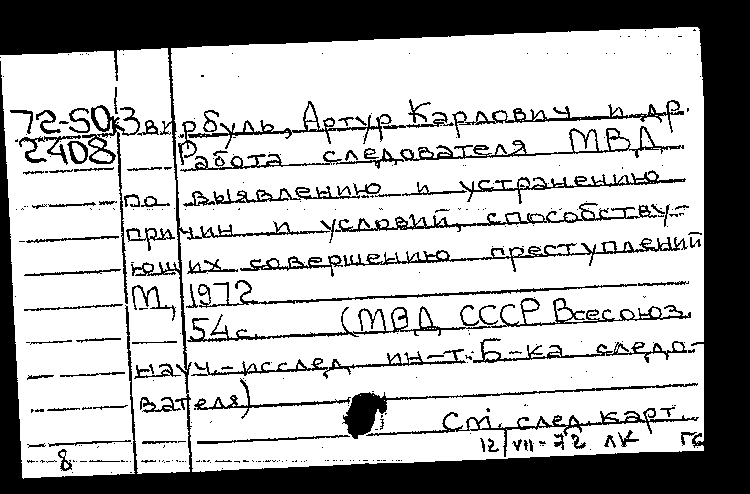 72-50к Звирбуль, Артур Карлович и др.
2408 Работа следователя МВД
по выявлению и устранению
причин и условий, способству-
ющих совершению преступлений
М, 1972
54 с. (МВД СССР Всесоюз.
науч.-исслед. ин-т. Б-ка следо-
вателя)
См. след. карт.
12/VII-72 ЛК ГС
8